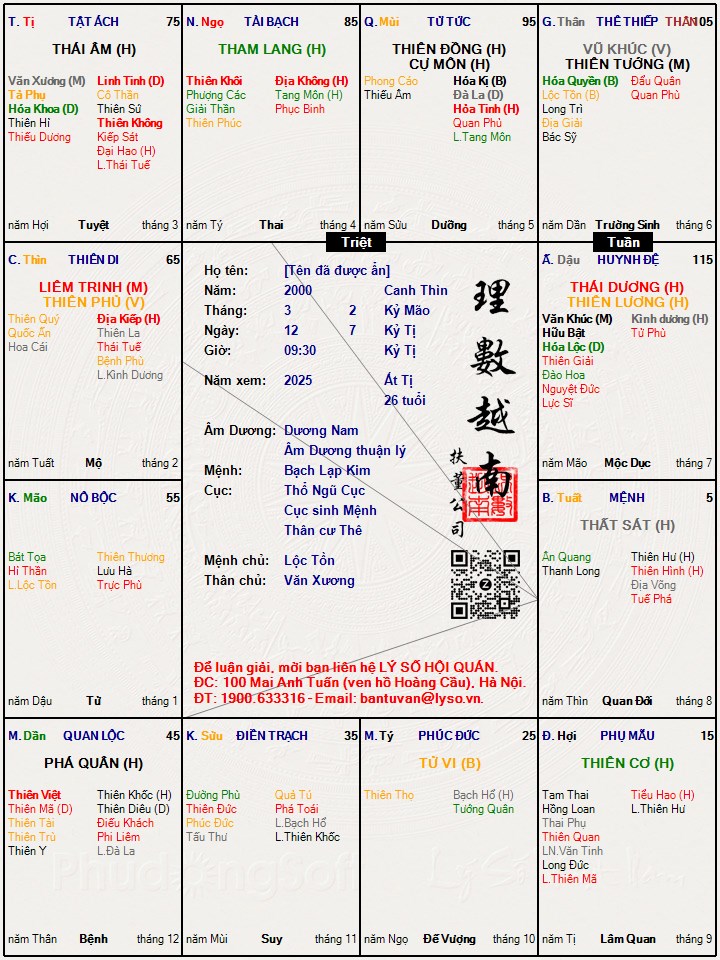 T. Tị TẬT ÁCH 75
THÁI ÂM (H)
Văn Xương (M) Linh Tinh (D)
Tả Phụ Cô Thần
Hóa Khoa (D) Thiên Sứ
Thiên Hỉ Thiên Không
Thiếu Dương Kiếp Sát
Đại Hao (H)
L.Thái Tuế
năm Hợi Tuyệt tháng 3
N. Ngọ TÀI BẠCH 85
THAM LANG (H)
Thiên Khôi Địa Không (H)
Phượng Các Tang Môn (H)
Giải Thần Phục Binh
Thiên Phúc
năm Tý Thai tháng 4
Q. Mùi TỬ TỨC 95
THIÊN ĐỒNG (H)
CỰ MÔN (H)
Phong Cáo Hóa Kị (B)
Thiếu Âm Đà La (D)
Hỏa Tinh (H)
Quan Phủ
L.Tang Môn
năm Sửu Dưỡng tháng 5
G. Thân THÊ THIẾP THÂN 105
VŨ KHÚC (V)
THIÊN TƯỚNG (M)
Hóa Quyền (B) Đẩu Quân
Lộc Tồn (B) Quan Phù
Long Trì
Địa Giải
Bác Sỹ
năm Dần Trường Sinh tháng 6
Triệt
Tuần
C. Thìn THIÊN DI 65
LIÊM TRINH (M)
THIÊN PHỦ (V)
Thiên Quý Địa Kiếp (H)
Quốc Ấn Thiên La
Hoa Cái Thái Tuế
Bệnh Phù
L.Kình Dương
năm Tuất Mộ tháng 2
Họ tên: [Tên đã được ẩn]
Năm: 2000 Canh Thìn
Tháng: 3 2 Kỷ Mão
Ngày: 12 7 Kỷ Tị
Giờ: 09:30 Kỷ Tị
Năm xem: 2025 Ất Tị
26 tuổi
Âm Dương: Dương Nam
Âm Dương thuận lý
Mệnh: Bạch Lạp Kim
Cục: Thổ Ngũ Cục
Cục sinh Mệnh
Thân cư Thê
Mệnh chủ: Lộc Tồn
Thân chủ: Văn Xương
理數越南
扶董公司
Z
Để luận giải, mời bạn liên hệ LÝ SỐ HỘI QUÁN.
ĐC: 100 Mai Anh Tuấn (ven hồ Hoàng Cầu), Hà Nội.
ĐT: 1900.633316 - Email: bantuvan@lyso.vn.
Ấ. Dậu HUYNH ĐỆ 115
THÁI DƯƠNG (H)
THIÊN LƯƠNG (H)
Văn Khúc (M) Kình dương (H)
Hữu Bật Tử Phù
Hóa Lộc (D)
Thiên Giải
Đào Hoa
Nguyệt Đức
Lực Sĩ
năm Mão Mộc Dục tháng 7
K. Mão NÔ BỘC 55
Bát Tọa Thiên Thương
Hỉ Thần Lưu Hà
L.Lộc Tồn Trực Phù
năm Dậu Tử tháng 1
B. Tuất MỆNH 5
THẤT SÁT (H)
Ân Quang Thiên Hư (H)
Thanh Long Thiên Hình (H)
Địa Võng
Tuế Phá
năm Thìn Quan Đới tháng 8
M. Dần QUAN LỘC 45
PHÁ QUÂN (H)
Thiên Việt Thiên Khốc (H)
Thiên Mã (D) Thiên Diêu (D)
Thiên Tài Điếu Khách
Thiên Trù Phi Liêm
Thiên Y L.Đà La
năm Thân Bệnh tháng 12
K. Sửu ĐIỀN TRẠCH 35
Đường Phù Quả Tú
Thiên Đức Phá Toái
Phúc Đức L.Bạch Hổ
Tấu Thư L.Thiên Khốc
năm Mùi Suy tháng 11
M. Tý PHÚC ĐỨC 25
TỬ VI (B)
Thiên Thọ Bạch Hổ (H)
Tướng Quân
năm Ngọ Đế Vượng tháng 10
Đ. Hợi PHỤ MẪU 15
THIÊN CƠ (H)
Tam Thai Tiểu Hao (H)
Hồng Loan L.Thiên Hư
Thai Phụ
Thiên Quan
LN.Văn Tinh
Long Đức
L.Thiên Mã
năm Tị Lâm Quan tháng 9